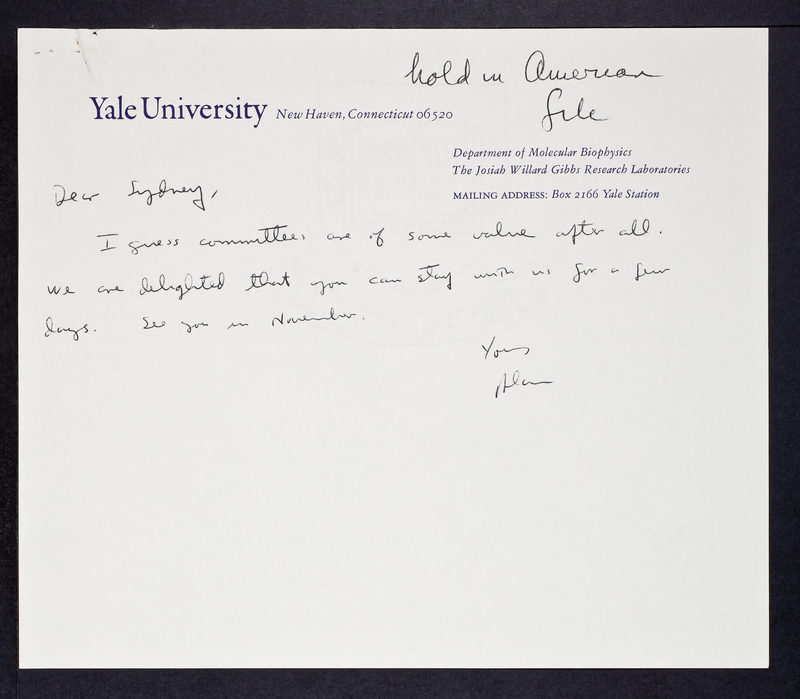 hold in American
file
Yale University New Haven, Connecticut 06520
Department of Molecular Biophysics
The Josiah Willard Gibbs Research Laboratories
MAILING ADDRESS: Box 2166 Yale Station
Dear Sydney,
I guess committees are of some value after all.
We are delighted that you can stay with us for a few
days. See you in November.
Yours
Alan